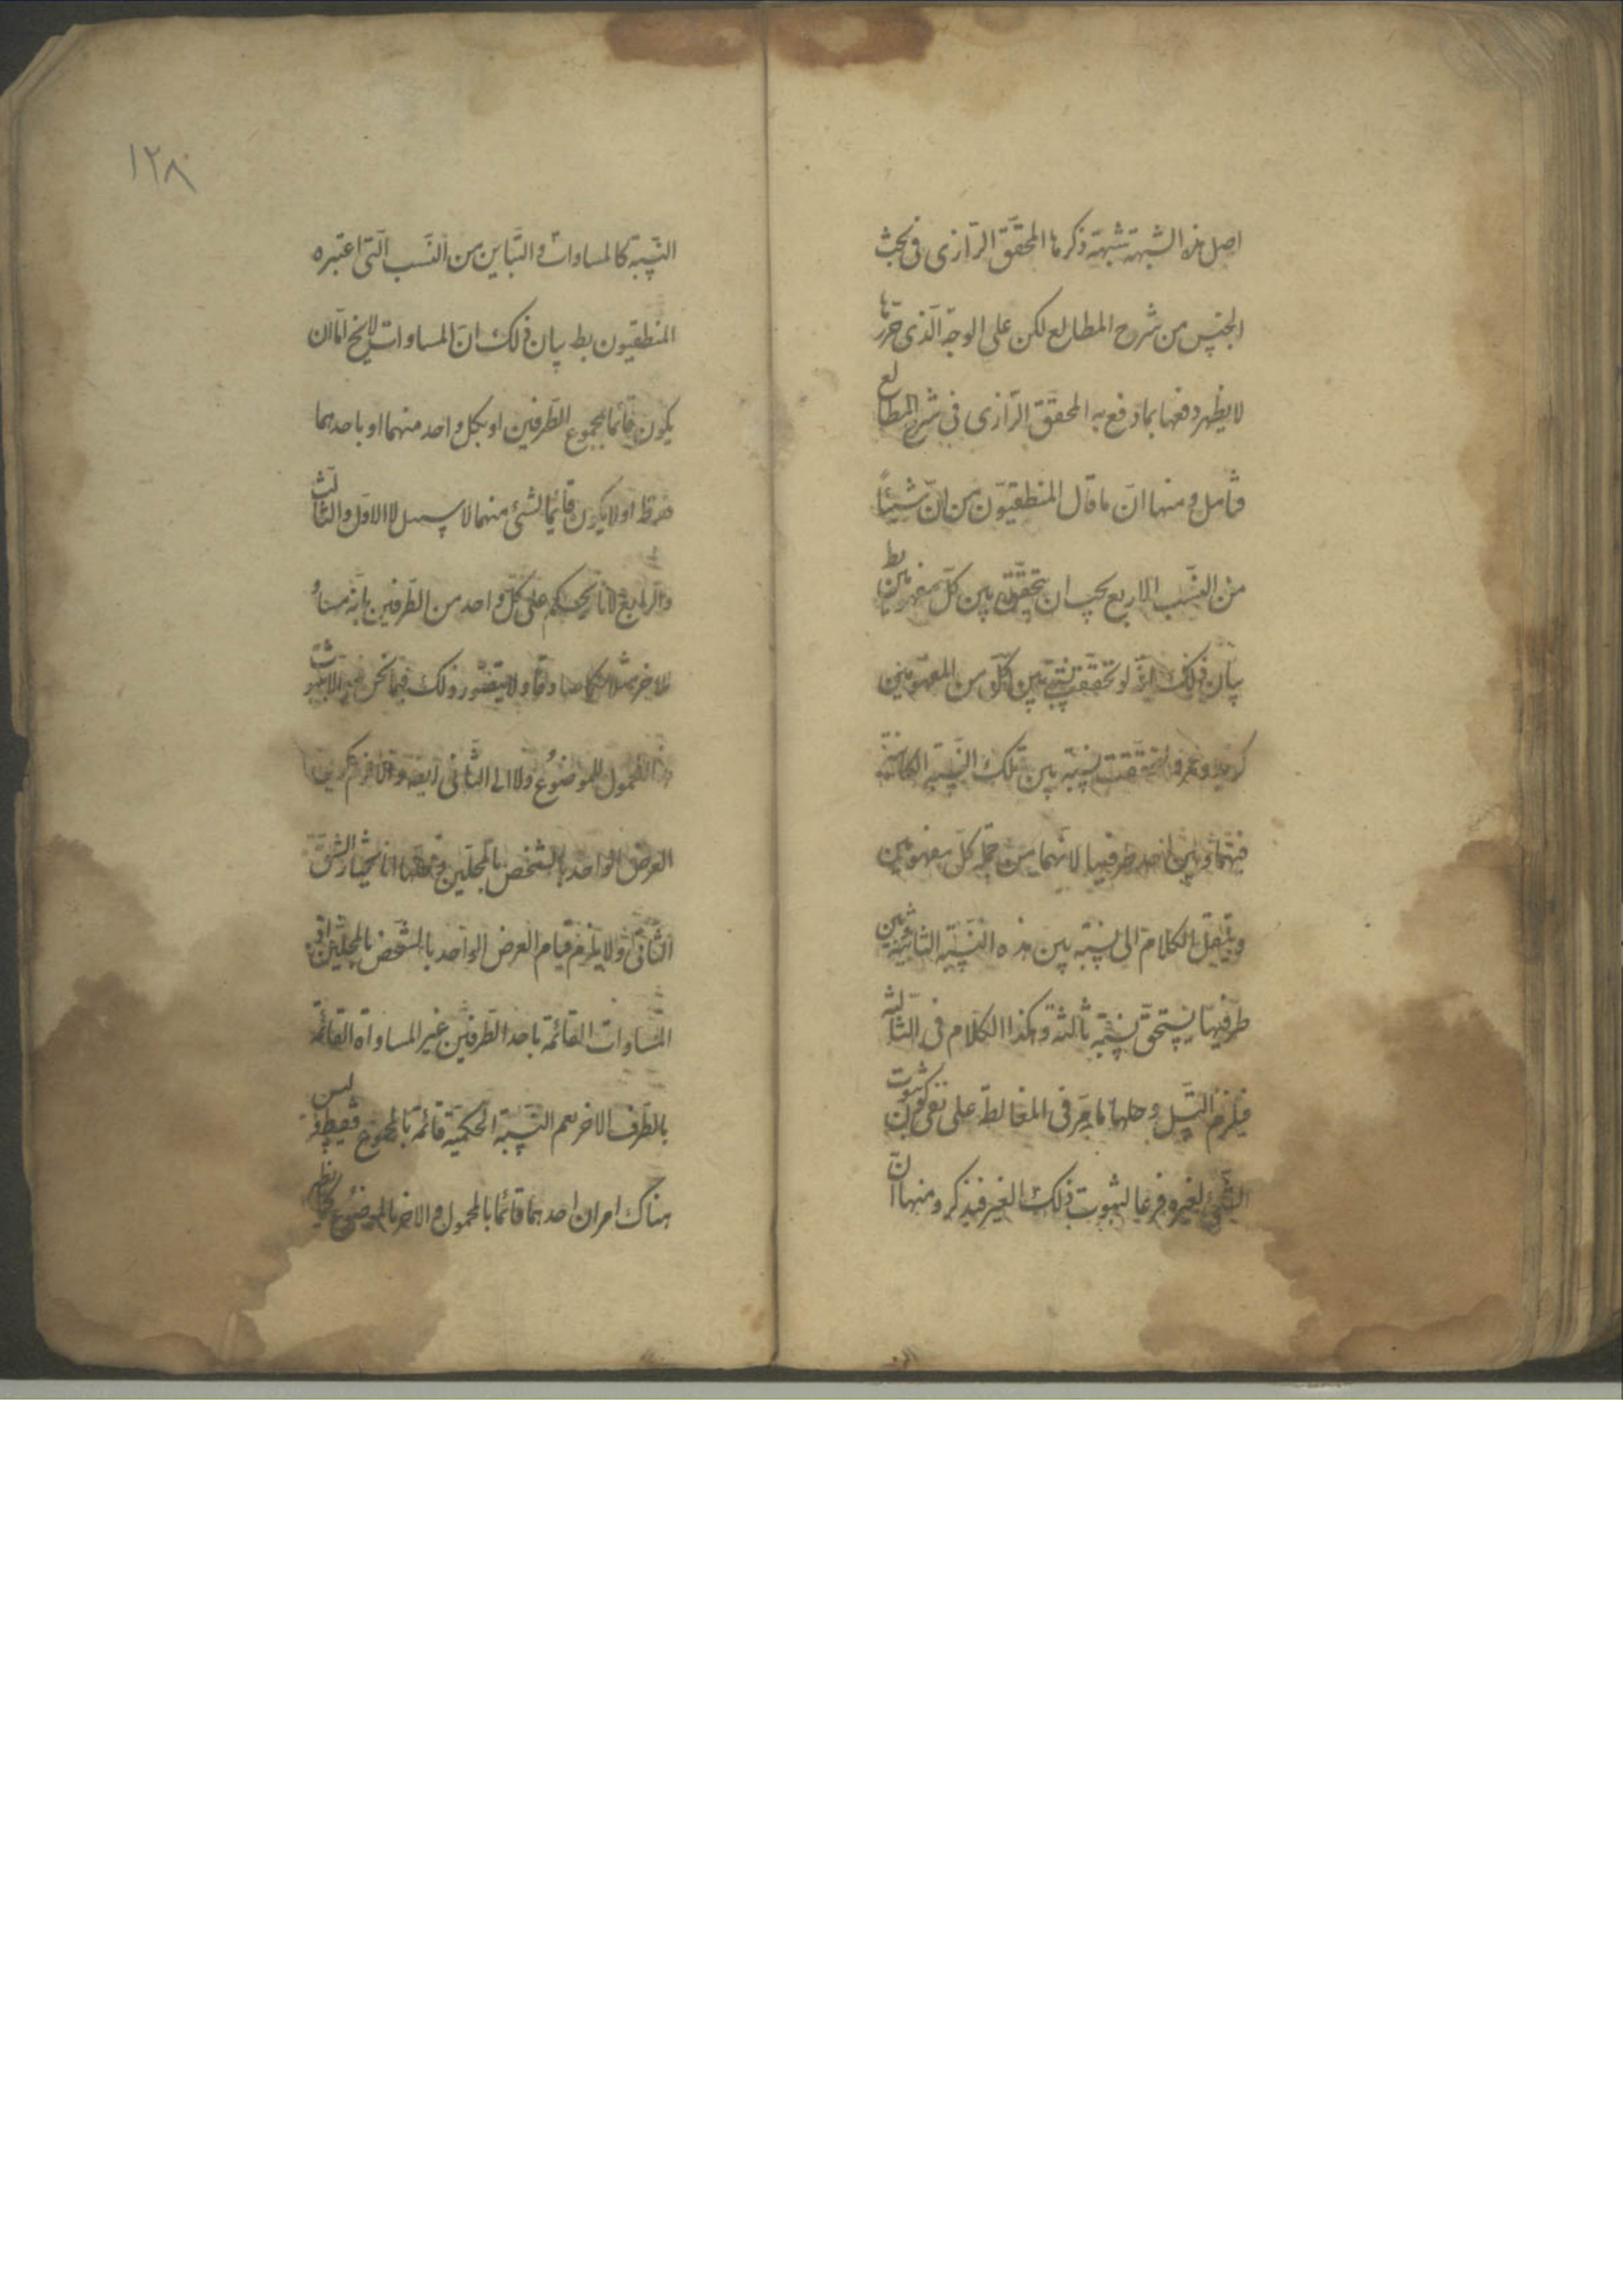 اصل هذه الشبهة شبهة ذكرها المحقق الرازى فى بحث
الجنس من شرح المطالع لكن على الوجه الذى حررها
لا يظهر دفعها بما دفع به المحقق الرازى فى شرح المطالع
فتامل ومنها ان ما قال المنطقيون من ان شيئاً
من النسب الاربع يجب ان يتحقق بين كل مفهومين بط
بيان ذلك انه لو تحققت نسبة بين كل من المفهومين
كزيد وعمرو لتحققت نسبة بين تلك النسبة الكائنة
فيهما وبين احد طرفيها لانهما من جملة كل مفهومين
وينتقل الكلام الى نسبة بين هذه النسبة الثانية وبين
طرفيها يستحق نسبة ثالثة وهكذا الكلام فى الثالثة
فيلزم التسل وحلها ما مر فى المغالطة على نفى كون ثبوت
الشئ لغيره فرعا لثبوت ذلك الغير فتذكر ومنها ان
١٢٨
النسبة كالمساوات والتباين من النسب التى اعتبره
المنطقيون بط بيان ذلك ان المساوات لا يخ اما ان
يكون قائما بمجموع الطرفين او بكل واحد منهما او باحدهما
فقط او لا يكون قائما لشئ منهما لا سبيل لا الاول والثالث
والرابع لانا نحكم على كل واحد من الطرفين بانه مساو
للاخر ولا يتصور ذلك فيما نحن فيه الا بثبوت
المحمول للموضوع ولا الى الثانى ايضا والا لزم
العرض الواحد بالشخص بالمحلين وحلها انا نختار الشق
الثانى ولا يلزم قيام العرض الواحد بالشخص بالمحلين
المساوات القائمة باحد الطرفين غير المساواة القائمة
بالطرف الاخر نعم النسبة الحكمية قائمة بالمجموع فقط وليس
هناك امران احدهما قائما بالمحمول والاخر بالموضوع